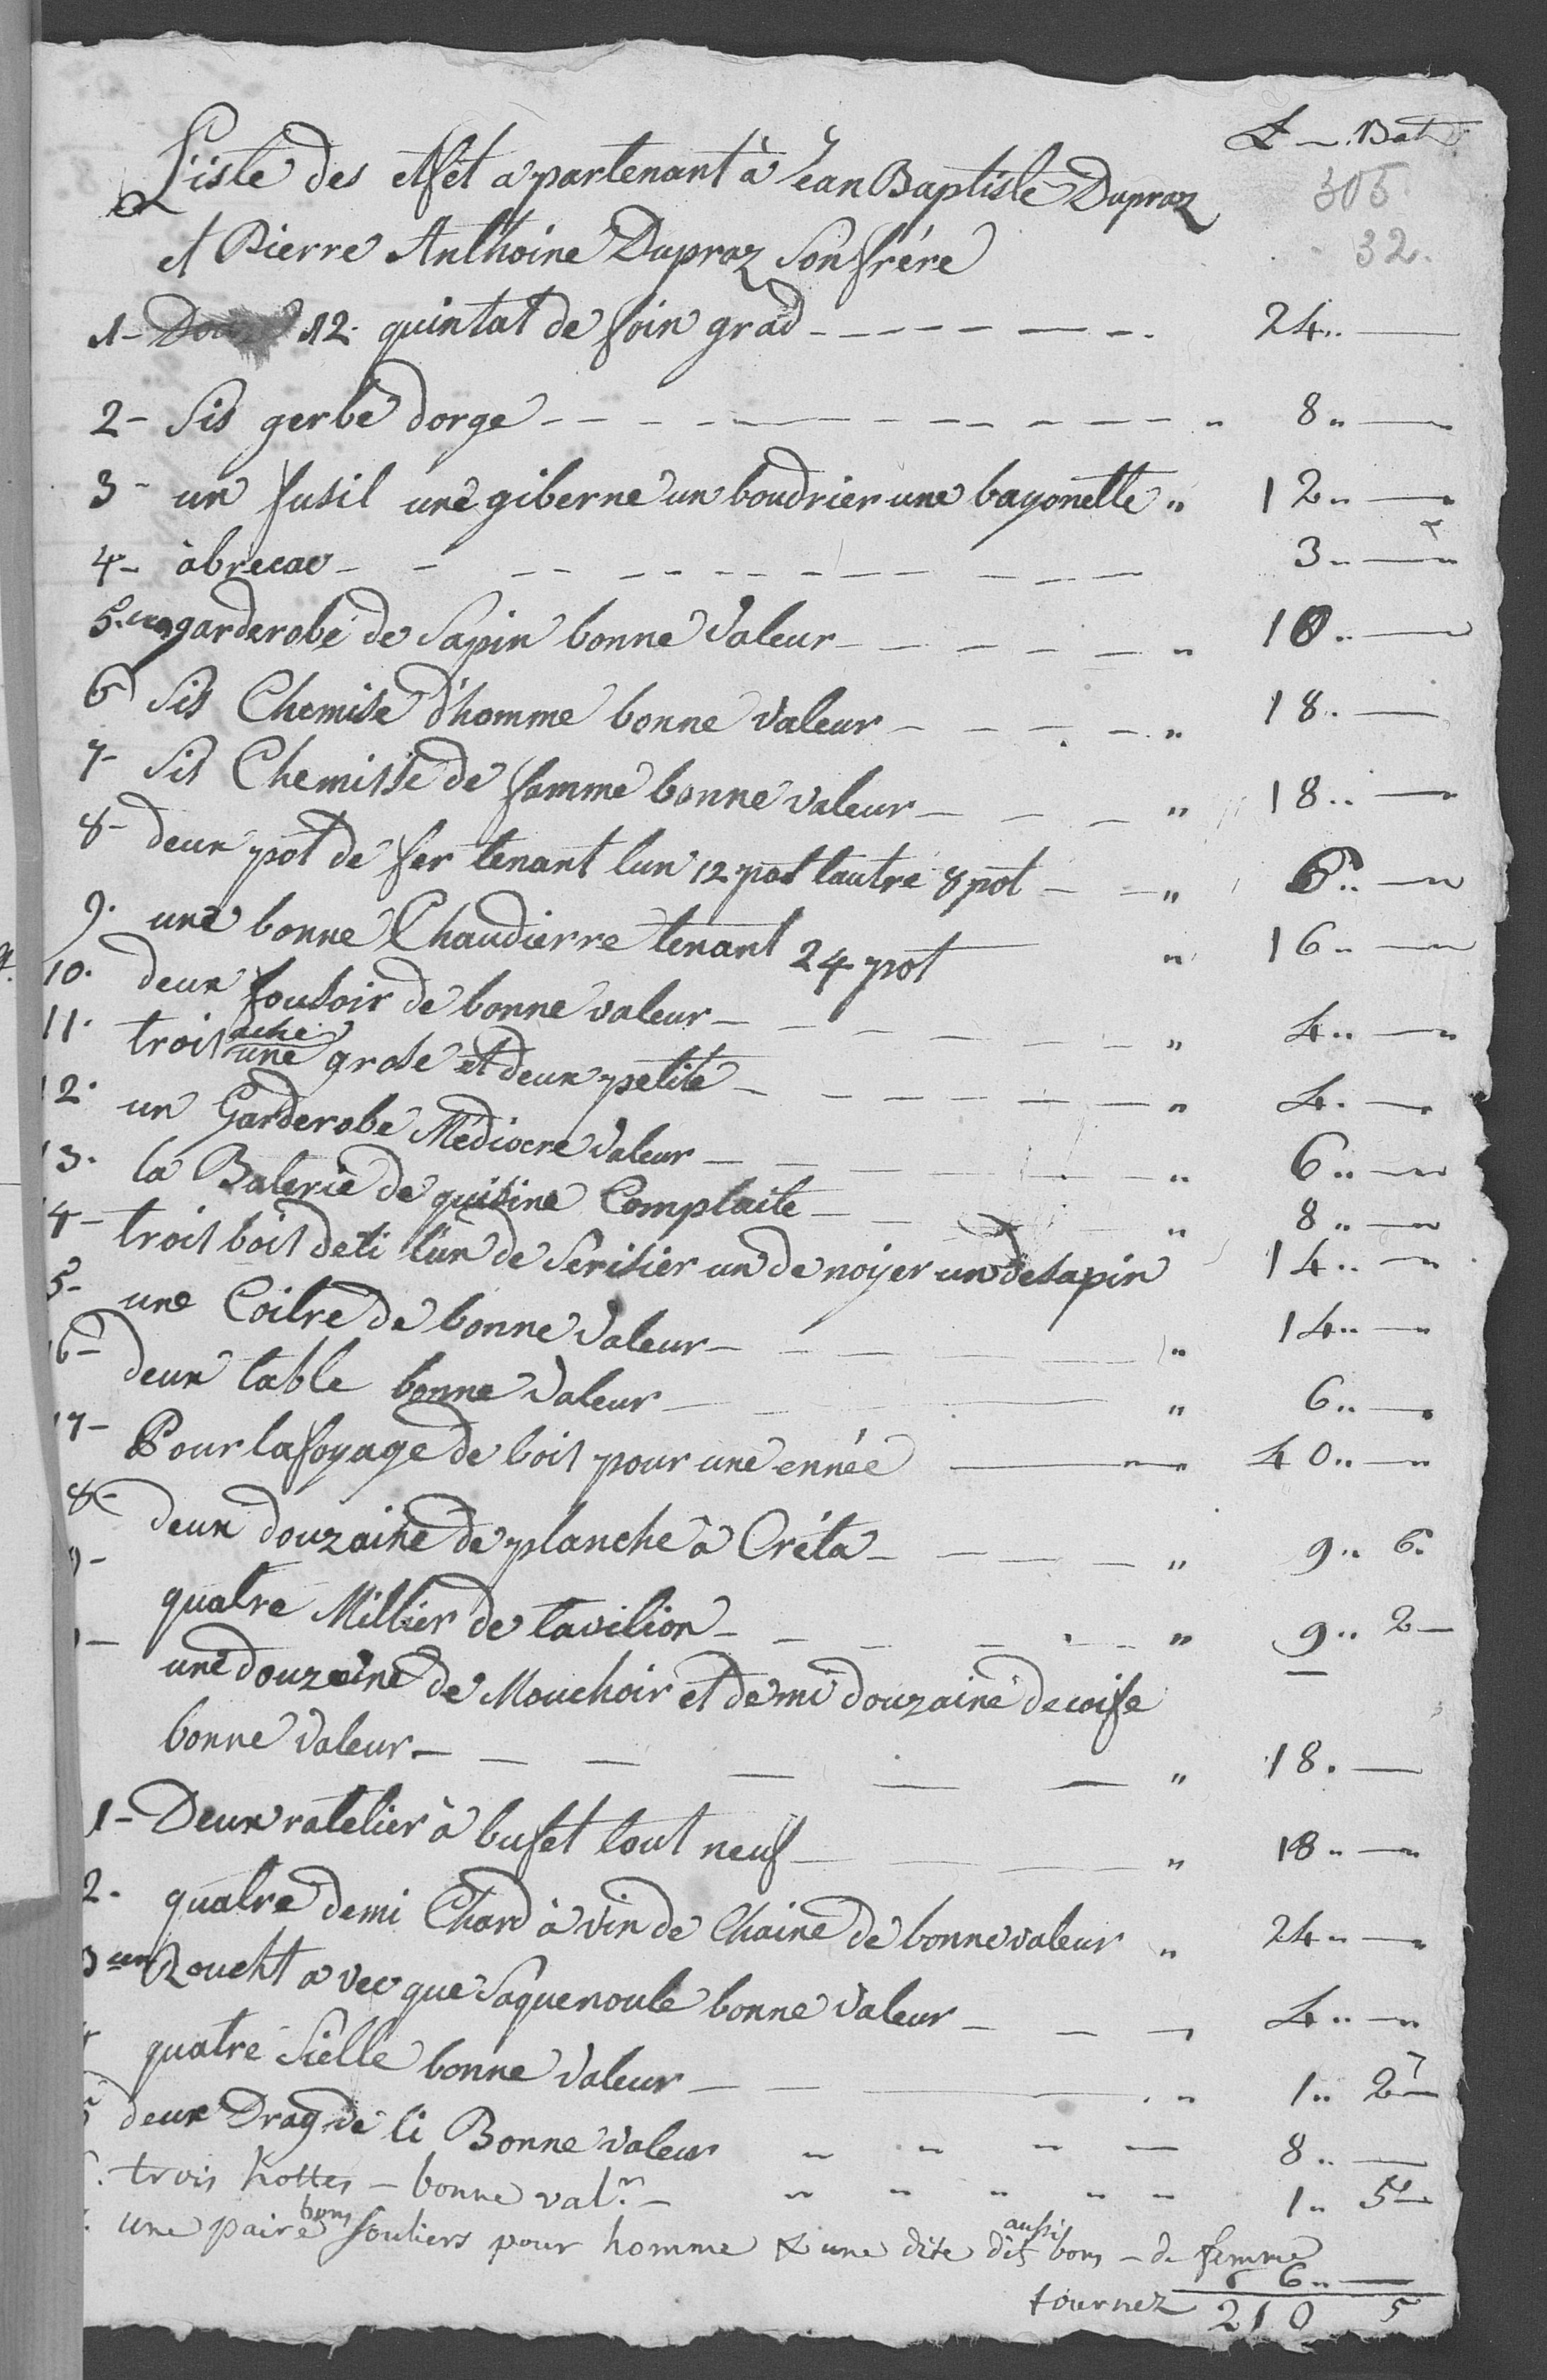 L — Bat
Liste des effet apartenant à Jean Baptiste Dupraz 305
et Pierre Anthoine Dupraz Son frére 32.
1- 12. quintat de foin grad - - - - - - 24.. —
2- Sis gerbe dorge - - - - - - " 8.. —
3- un fusil une giberne un boudrier une bayonette " 12.. —
4- àbrecac - - - - - - 3.. —
5. un garderobe de Sapin bonne Valeur - - - - " 10.. —
6 Sis Chemise d'homme bonne Valeur - - - - " 18. —
7- Sis Chemisse de famme bonne valeur - - - " 18.. —
8- deux pot de fer tenant lun 12 pot lautre 8 pot - - " 6.. —
9. une bonne Chaudierre tenant 24 pot " 16.. —
10. deux fousoir de bonne valeur - - - - " 4.. —
11. trois ache une grose et deux petite - - - - " 4. —
12. un Garderobe Médiocre Valeur - - - - " 6.. —
13. la Baterie de quisine Complaite - - - " 8.. —
4- trois bois deli l'un de Serisier un de noyer un de sapin 14.. —
5- une Coitre de bonne Valeur - - - - " 14.. —
16- deux table bonne Valeur - - - " 6.. —
17- Pour lafoyage de bois pour une ennée — " 40.. —
8- deux douzaine de planche à Créta - - - - " 9.. 6.
9- quatre Millier de tavilion - - - - " 9.. 2 —
- une douzaine de Mouchoir et demi douzaine de coife
bonne Valeur - - - - - - " 18. —
1- Deux ratelier à bufet tout neuf - - - - " 18.. —
2. quatre demi Chard à vin de Chaine de bonne valeur " 24.. —
3 un Roucht avec que Saquenoule bonne Valeur - - - 4.. —
quatre Sielle bonne Valeur - - — " 1.. 2 —
5 deux Drag de li Bonne Valeur " " " — 8.. —
. trois hottes — bonne val.r — " " " " " 1.. 5 —
. une paire bons souliers pour homme & une dite dit aussi bons — de femme
6.. —
tournez 210 5